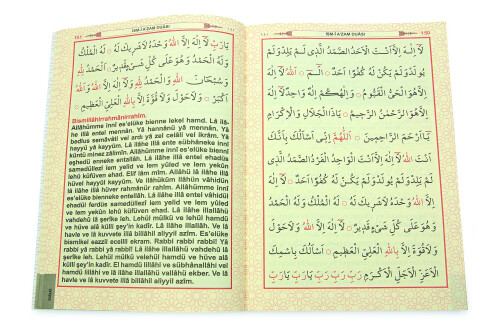 150 İSM-İ A'ZAM DUÂSI
لَا اِلٰهَ اِلَّا اَنْتَ الْاَحَدُ الصَّمَدُ الَّذِى لَمْ يَلِدْ وَلَمْ
يُولَدْ وَلَمْ يَكُنْ لَهُ كُفُوًا اَحَدٌ ۞ الٓمٓ ۞ اَللّٰهُ لَا اِلٰهَ
اِلَّا هُوَ الْحَىُّ الْقَيُّومُ ۞ وَاِلٰهُكُمْ اِلٰهٌ وَاحِدٌ لَا اِلٰهَ
اِلَّا هُوَ الرَّحْمٰنُ الرَّحِيمُ ۞ يَا ذَا الْجَلَالِ وَالْاِكْرَامِ
يَا اَرْحَمَ الرَّاحِمِينَ ۞ اَللّٰهُمَّ اِنِّى اَسْاَلُكَ بِاَنَّكَ
اَنْتَ اللّٰهُ لَا اِلٰهَ اِلَّا اَنْتَ الْوَاحِدُ الْفَرْدُ الصَّمَدُ الَّذِى
لَمْ يَلِدْ وَلَمْ يُولَدْ وَلَمْ يَكُنْ لَهُ كُفُوًا اَحَدٌ ۞ لَا
اِلٰهَ اِلَّا اللّٰهُ وَحْدَهُ لَا شَرِيكَ لَهُ لَهُ الْمُلْكُ وَلَهُ الْحَمْدُ
وَهُوَ عَلٰى كُلِّ شَىْءٍ قَدِيرٌ ۞ لَا اِلٰهَ اِلَّا اللّٰهُ وَلَا حَوْلَ
وَلَا قُوَّةَ اِلَّا بِاللّٰهِ الْعَلِىِّ الْعَظِيمِ ۞ اَسْاَلُكَ بِاسْمِكَ
الْاَعَزِّ الْاَجَلِّ الْاَكْرَمِ رَبِّ رَبِّ رَبِّ يَارَبِّ يَارَبِّ
151 İSM-İ A'ZAM DUÂSI
يَارَبِّ لَا اِلٰهَ اِلَّا اللّٰهُ وَحْدَهُ لَا شَرِيكَ لَهُ ۞ لَهُ الْمُلْكُ
وَلَهُ الْحَمْدُ وَهُوَ عَلٰى كُلِّ شَىْءٍ قَدِيرٌ ۞ اَلْحَمْدُ لِلّٰهِ
وَسُبْحَانَ اللّٰهِ وَالْحَمْدُ لِلّٰهِ وَلَا اِلٰهَ اِلَّا اللّٰهُ وَاللّٰهُ
اَكْبَرُ ۞ وَلَا حَوْلَ وَلَا قُوَّةَ اِلَّا بِاللّٰهِ الْعَلِىِّ الْعَظِيمِ ۞
Bismillâhirrahmânirrahîm.
Allâhümme innî es'elüke bienne lekel hamd. Lâ ilâ-
he illâ entel mennân. Yâ hannânü yâ mennân. Yâ
bedîus semâvâti vel ardı yâ zel celâli vel ikrâm. Yâ
hayyü yâ kayyûm. Lâ ilâhe illâ ente sübhâneke innî
küntü minez zâlimîn. Allâhümme innî es'elüke biennî
eşhedü enneke entallâh. Lâ ilâhe illâ entel ehadüs
samedüllezî lem yelid ve lem yûled ve lem yekün
lehû küfüven ehad. Elif lâm mîm. Allâhü lâ ilâhe illâ
hüvel hayyül kayyûm. Ve ilâhüküm ilâhün vâhidün
lâ ilâhe illâ hüver rahmânür rahîm. Allâhümme innî
es'elüke bienneke entallâh. Lâ ilâhe illâ entel vâhidül
ehadül ferdüs samedüllezî lem yelid ve lem yûled
ve lem yekün lehû küfüven ehad. Lâ ilâhe illallâhü
vahdehû lâ şerîke leh. Lehül mülkü ve lehül hamdü
ve hüve alâ külli şey'in kadîr. Lâ ilâhe illallâhü ve lâ
havle ve lâ kuvvete illâ billâhil aliyyil azîm. Es'elüke
bismikel eazzil ecellil ekram. Rabbi rabbi rabbi! Yâ
rabbi yâ rabbi yâ rabbi! Lâ ilâhe illallâhü vahdehû lâ
şerîke leh. Lehül mülkü velehül hamdü ve hüve alâ
külli şey'in kadîr. El hamdü lillâhi ve sübhânallâhi vel
hamdü lillâhi ve lâ ilâhe illallâhü vallâhü ekber. Ve lâ
havle ve lâ kuvvete illâ billâhil aliyyil azîm.